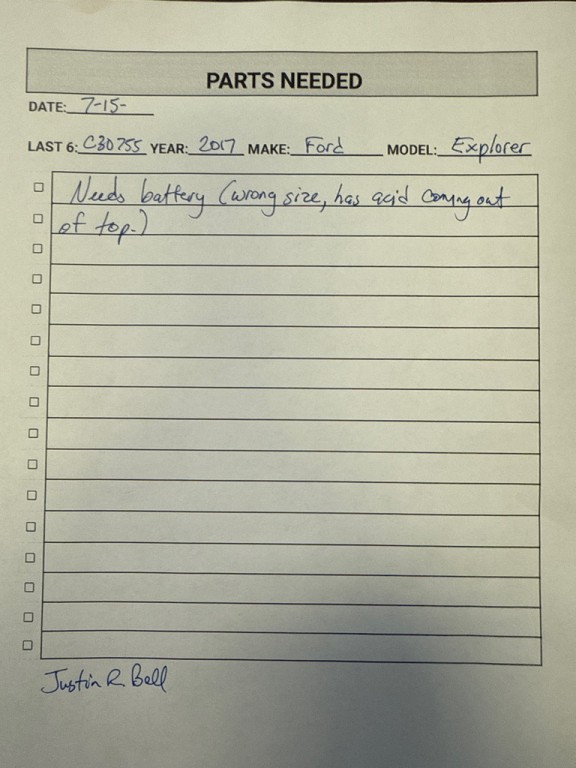 PARTS NEEDED
DATE: 7-15-
LAST 6: C30755 YEAR: 2017 MAKE: Ford MODEL: Explorer
Needs battery (wrong size, has acid coming out
of top.)
Justin R. Bell